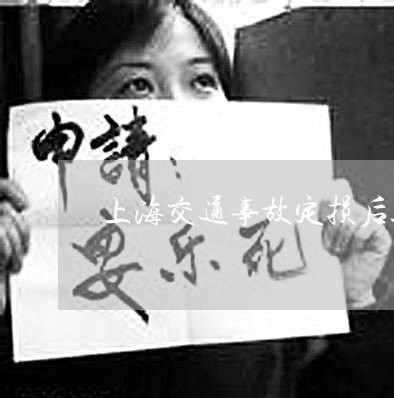 申請：
上海交通事故定损后
安乐死